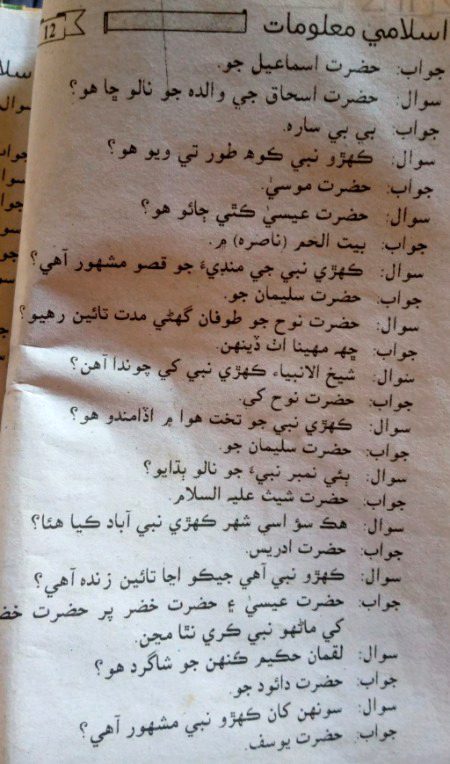 اسلامي معلومات
12
جواب: حضرت اسماعيل جو.
سوال: حضرت اسحاق جي والده جو نالو ڇا هو؟
جواب: بي بي ساره.
سوال: ڪهڙو نبي ڪوه طور تي ويو هو؟
جواب: حضرت موسيٰ.
سوال: حضرت عيسيٰ ڪٿي ڄائو هو؟
جواب: بيت الحم (ناصره) ۾.
سوال: ڪهڙي نبي جي منڊيءَ جو قصو مشهور آهي؟
جواب: حضرت سليمان جو.
سوال: حضرت نوح جو طوفان گهڻي مدت تائين رهيو؟
جواب: ڇهہ مهينا اٺ ڏينهن.
سوال: شيخ الانبياء ڪهڙي نبي کي چوندا آهن؟
جواب: حضرت نوح کي.
سوال: ڪهڙي نبي جو تخت هوا ۾ اڏامندو هو؟
جواب: حضرت سليمان جو.
سوال: ٻئي نمبر نبيءَ جو نالو ٻڌايو؟
جواب: حضرت شيث عليہ السلام.
سوال: هڪ سؤ اسي شهر ڪهڙي نبي آباد ڪيا هئا؟
جواب: حضرت ادريس.
سوال: ڪهڙو نبي آهي جيڪو اڃا تائين زنده آهي؟
جواب: حضرت عيسيٰ ۽ حضرت خضر پر حضرت
کي ماڻهو نبي ڪري نٿا مڃن.
سوال: لقمان حڪيم ڪنهن جو شاگرد هو؟
جواب: حضرت دائود جو.
سوال: سونهن کان ڪهڙو نبي مشهور آهي؟
جواب: حضرت يوسف.